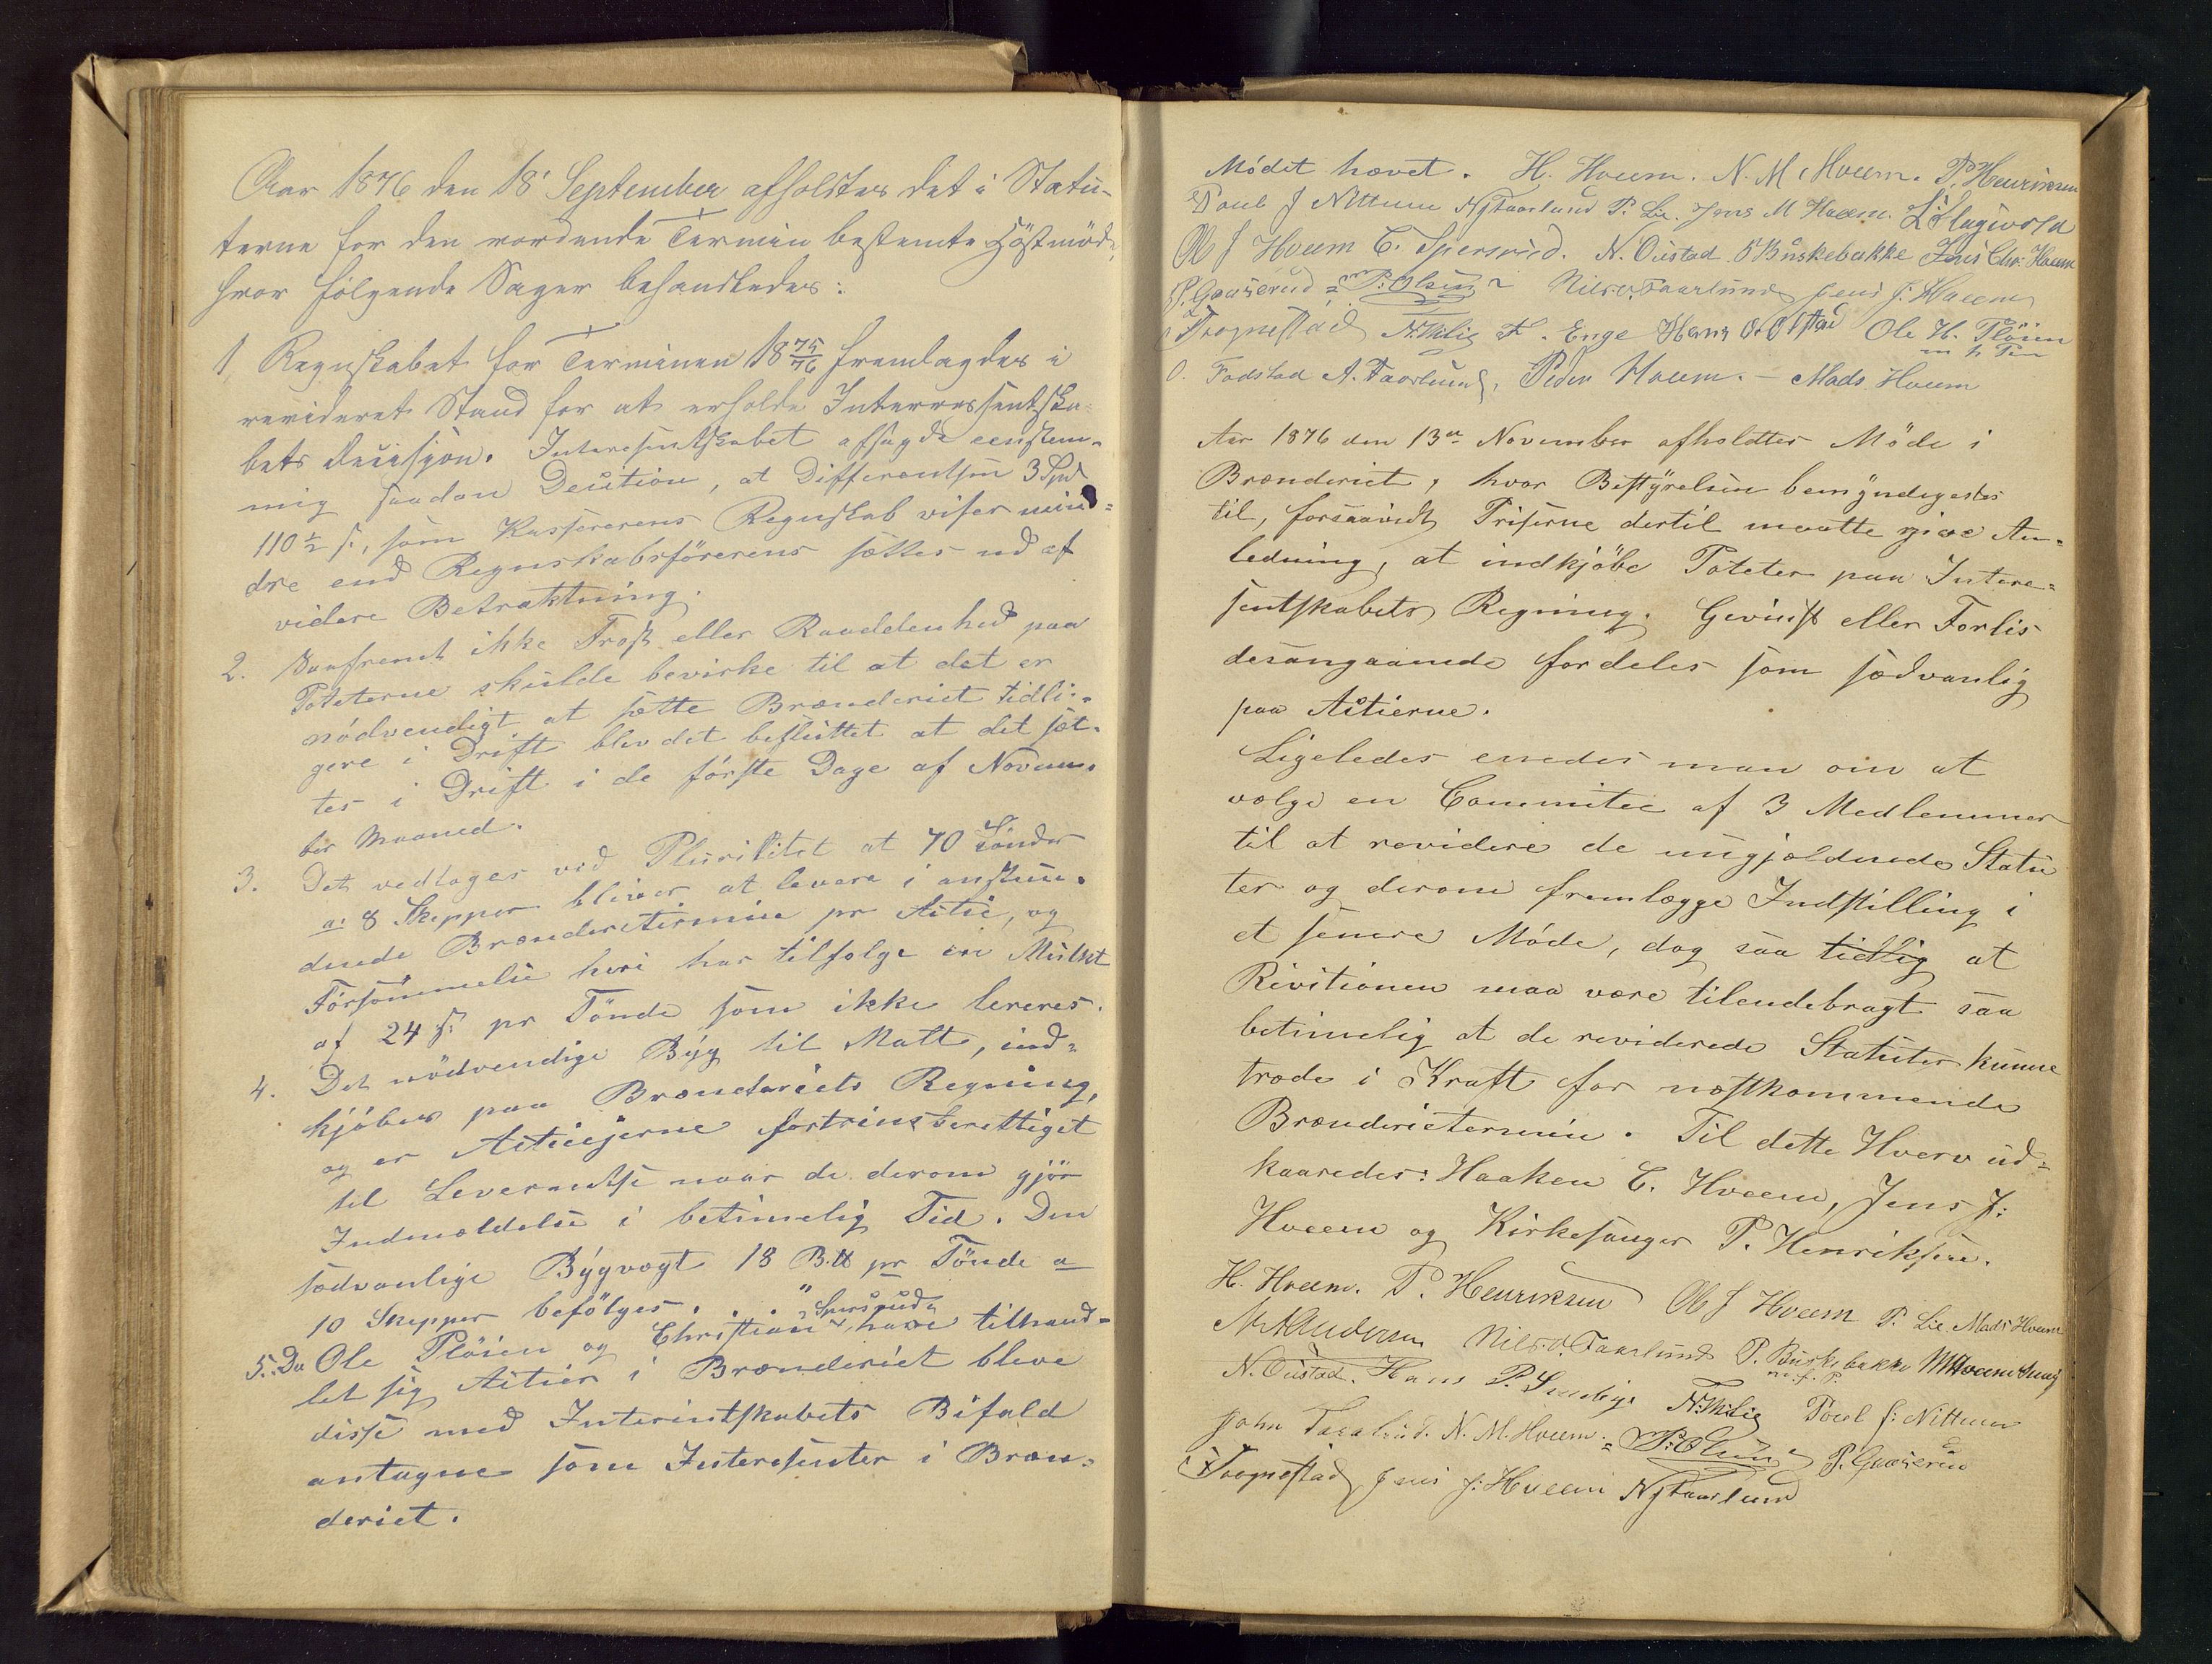 Aar 1876 den 18' September afholdtes det i Statu-
terne for den vordende Termin bestemte Høstmöde,
hvor følgende Sager behandledes:
1 Regnskabet for Terminen 18 75/76 fremlagdes i
revideret Stand for at erholde Interessentska-
bets Decisjon. Interesentskabet afsagde eenstem-
mig saadan Decition, at Differentsen 3 Spd
110 ½ s., som Kassererens Regnskab viser min-
dre end Regnskabsförerens sættes ud af
videre Betraktning.
2. Saafremt ikke Frost eller Raaddenhed paa
Poteterne skulde bevirke til at det er
nödvendigt at sætte Brænderiet tidli-
gere i Drift blev det besluttet at det sæt-
tes i Drift i de förste Dage af Novem-
ber Maaned.
3. Det vedtoges ved Pluralitet at 70 Tönder
a: 8 Skepper bliver at levere i anstun-
dende Brænderitermin pr Actie, og
Forsömmelse heri har tilfolge en Mulkt
af 24 s. pr Tönde som ikke leveres.
4. Det nödvendige Byg til Malt, ind-
kjöbes paa Brænderiets Regning,
og er Actieejerne fortrinsberettiget
til Leverantse naar de derom gjör
Indmeldelse i betimelig Tid. Den
sædvanlige Bygvægt 18 B.℔ pr Tönde a
10 Skepper befölges.
5. Da Ole Plöien og Christian Spersrud have tilhand-
let sig Actier i Brænderiet bleve
disse med Interesentskabets Bifald
antagne som Interesenter i Bræn-
deriet.
Mödet hævet. H. Hveem. N. M. Hveem. P. Henriksen
Poul J Nittum N J Faarlund P. Lie. Jens M Hveem.
Ole J Hveem C. Spersrud. N. Oustad O Buskebakke Jens Chr. Hveem
P. Gaarerud P. Olsen Nils O. Faarlund Jens J. Hveem
Trognestad N. Melie A. Enge Hans O. Ofstad Ole H. Plöien
m p Pen
O. Fodstad A. Faarlund. Peder Hveem. – Mads Hveem
Aar 1876 den 13de November afholdtes Möde i
Brænderiet, hvor Bestyrelsen bemyndigedes
til, forsaavidt Priserne dertil maatte give An-
ledning, at indkjöbe Poteter paa Intere-
sentskabets Regning. Gevinst eller Forlis
desangaaende fordeles som sædvanlig
paa Actierne.
Ligeledes enedes man om at
vælge en Committee af 3 Medlemmer
til at revidere de nugjældende Statu
ter og derom fremlægge Indstilling i
et senere Möde, dog saa tidlig at
Rivitionen maa være tilendebragt saa
betimelig at de reviderede Statuter kunne
træde i Kraft for næstkommende
Brænderietermin. Til dette Hverv ud-
kaaredes: Haaken C. Hveem, Jens J:
Hveem og Kirkesanger P. Henriksen.
H. Hveem. P. Henriksen Ole J Hveem P. Lie. Mads Hveem
N. Andersen Nils O. Faarlund P. Buskebakke M Hveem
m. f. P.
N. Oustad. Hans P. Smeby. N. Melie Poul J: Nittum
John Faarlund. N. M. Hveem. P. Olsen P. Gaarerud
Trognestad Jens J: Hveem N J Faarlund